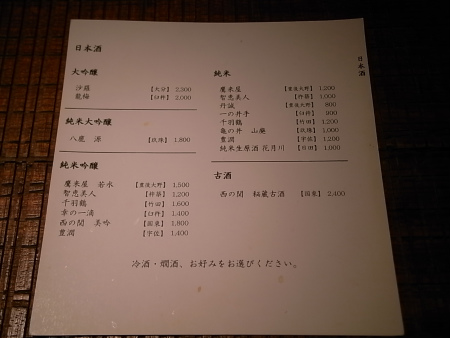 日本酒
大吟醸
沙羅 【大分】 2,300
龍梅 【臼杵】 2,000
純米大吟醸
八鹿 源 【玖珠】 1,800
純米吟醸
鷹来屋 若水 【豊後大野】 1,500
智恵美人 【杵築】 1,200
千羽鶴 【竹田】 1,600
幸の一滴 【臼杵】 1,400
西の関 美吟 【国東】 1,800
豊潤 【宇佐】 1,400
純米
鷹来屋 【豊後大野】 1,200
智恵美人 【杵築】 1,000
丹誠 【豊後大野】 800
一の井手 【臼杵】 900
千羽鶴 【竹田】 1,200
亀の井 山廃 【玖珠】 1,000
豊潤 【宇佐】 1,200
純米生原酒 花月川 【日田】 1,000
古酒
西の関 秘蔵古酒 【国東】 2,400
冷酒・燗酒、お好みをお選びください。
日本酒